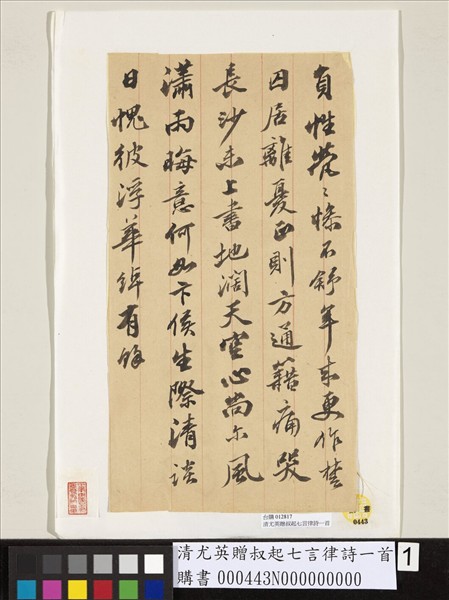 貞性煢〻慘不舒年來更作楚
囚居離憂正則方通籍痛哭
長沙未上書地濶天空心尚尔風
瀟雨晦意何如卞侯生際清談
日愧彼浮華綽有餘
台購 012817
清尤英贈叔起七言律詩一首
書
0443
清尤英贈叔起七言律詩一首
1
購書 000443N000000000